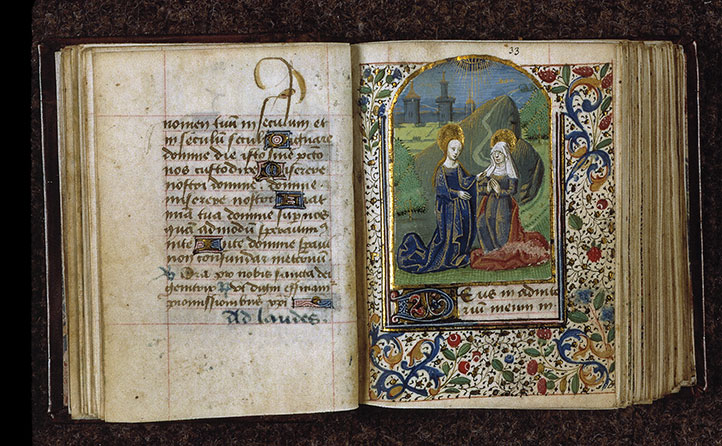 nomen tuum in seculum et
in seculum seculi Dignare
domine die isto sine pcc̄to
nos custodire Miserere
nostri domine domine
miserere nostri Fiat
mīa tua domine sup nos
quēadmodū sperauim9
in te In te domine speraui
non confundar in eternū
Ora pro nobis sancta dei
genitrix Vt digni efficiam̄
promissionibus xp̄i
Ad laudes.
33
Deus in adiuto
rium meum in